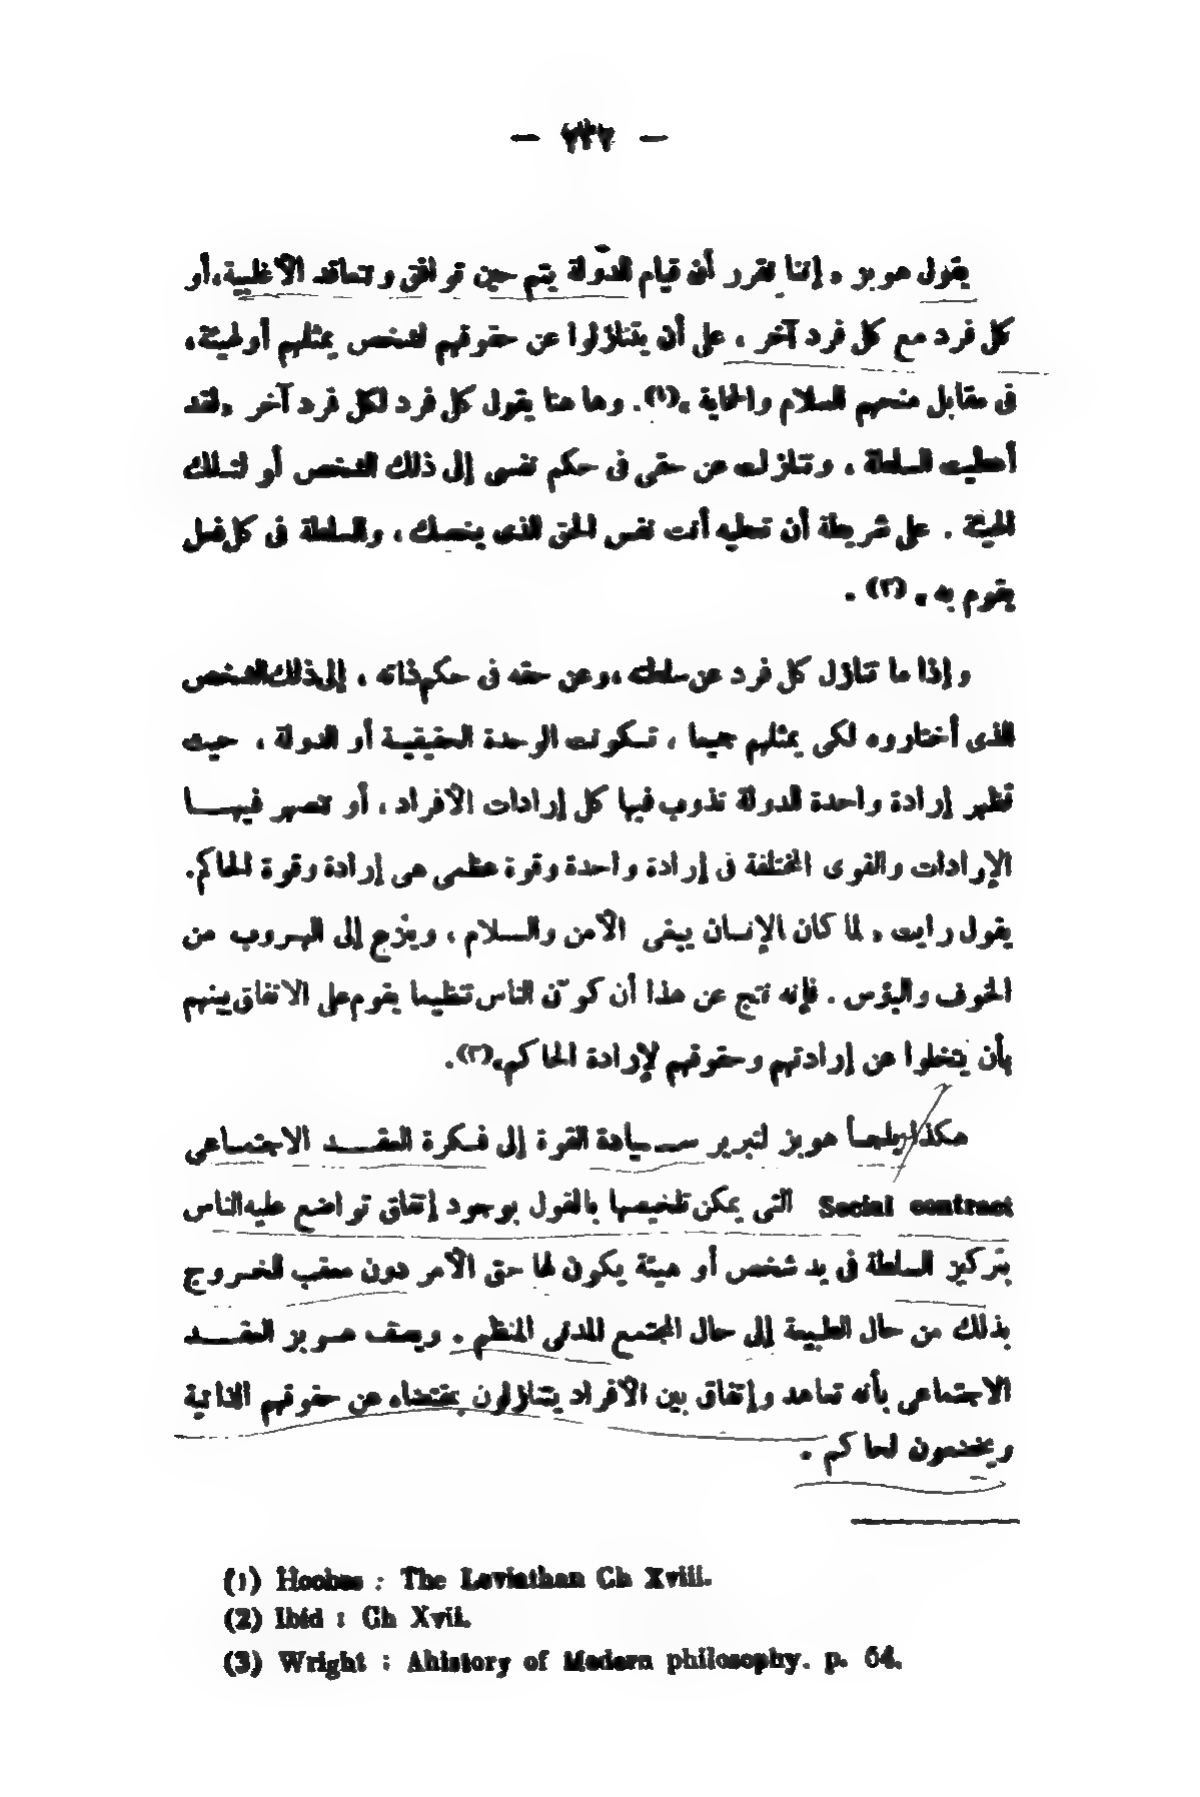 — ٢٣٢ —
يقول هوبز « إننا نقرر أن قيام الدولة يتم حين توافق وتتعاقد الأغلبية، أو
كل فرد مع كل فرد آخر ، على أن يتنازلوا عن حقوقهم لشخص يمثلهم أو لهيئة،
فى مقابل منحهم السلام والحماية »(١). وها هنا يقول كل فرد لكل فرد آخر «لقد
أعطيت السلطة ، وتنازلت عن حقى فى حكم نفسى إلى ذلك الشخص أو لتلك
الهيئة . على شريطة أن تعطيه أنت نفس الحق الذى يخصك ، والسلطة فى كل فعل
يقوم به » (٢) .
وإذا ما تنازل كل فرد عن سلطته ، وعن حقه فى حكم ذاته ، إلى ذلك الشخص
الذى أختاروه لكى يمثلهم جميعا ، تكونت الوحدة الحقيقية أو الدولة ، حيث
تظهر إرادة واحدة للدولة تذوب فيها كل إرادات الأفراد ، أو تنصهر فيهــا
الإرادات والقوى المختلفة فى إرادة واحدة وقوة عظمى هى إرادة وقوة الحاكم.
يقول رايت « لما كان الإنسان يبغى الأمن والسلام ، وينزع إلى الهروب من
الخوف والبؤس . فإنه نتج عن هذا أن كوّن الناس تنظيما يقوم على الاتفاق بينهم
بأن يتخلوا عن إرادتهم وحقوقهم لإرادة الحاكم»(٣).
هكذا يلجأ هوبز لتبرير سيادة القوة إلى فكرة العقــد الاجتماعى
Social contract التى يمكن تلخيصها بالقول بوجود إتفاق تواضع عليه الناس
بتركيز السلطة فى يد شخص أو هيئة يكون لها حق الأمر دون معقب للخروج
بذلك من حال الطبيعة إلى حال المجتمع المدنى المنظم . ويصف هوبز العقــد
الاجتماعى بأنه تعاهد وإتفاق بين الأفراد يتنازلون بمقتضاه عن حقوقهم الذاتية
ويخضعون لحاكم .
(1) Hoobes : The Leviathan Ch Xviii.
(2) Ibid : Ch Xvii.
(3) Wright : Ahistory of Modern philosophy. p. 64.